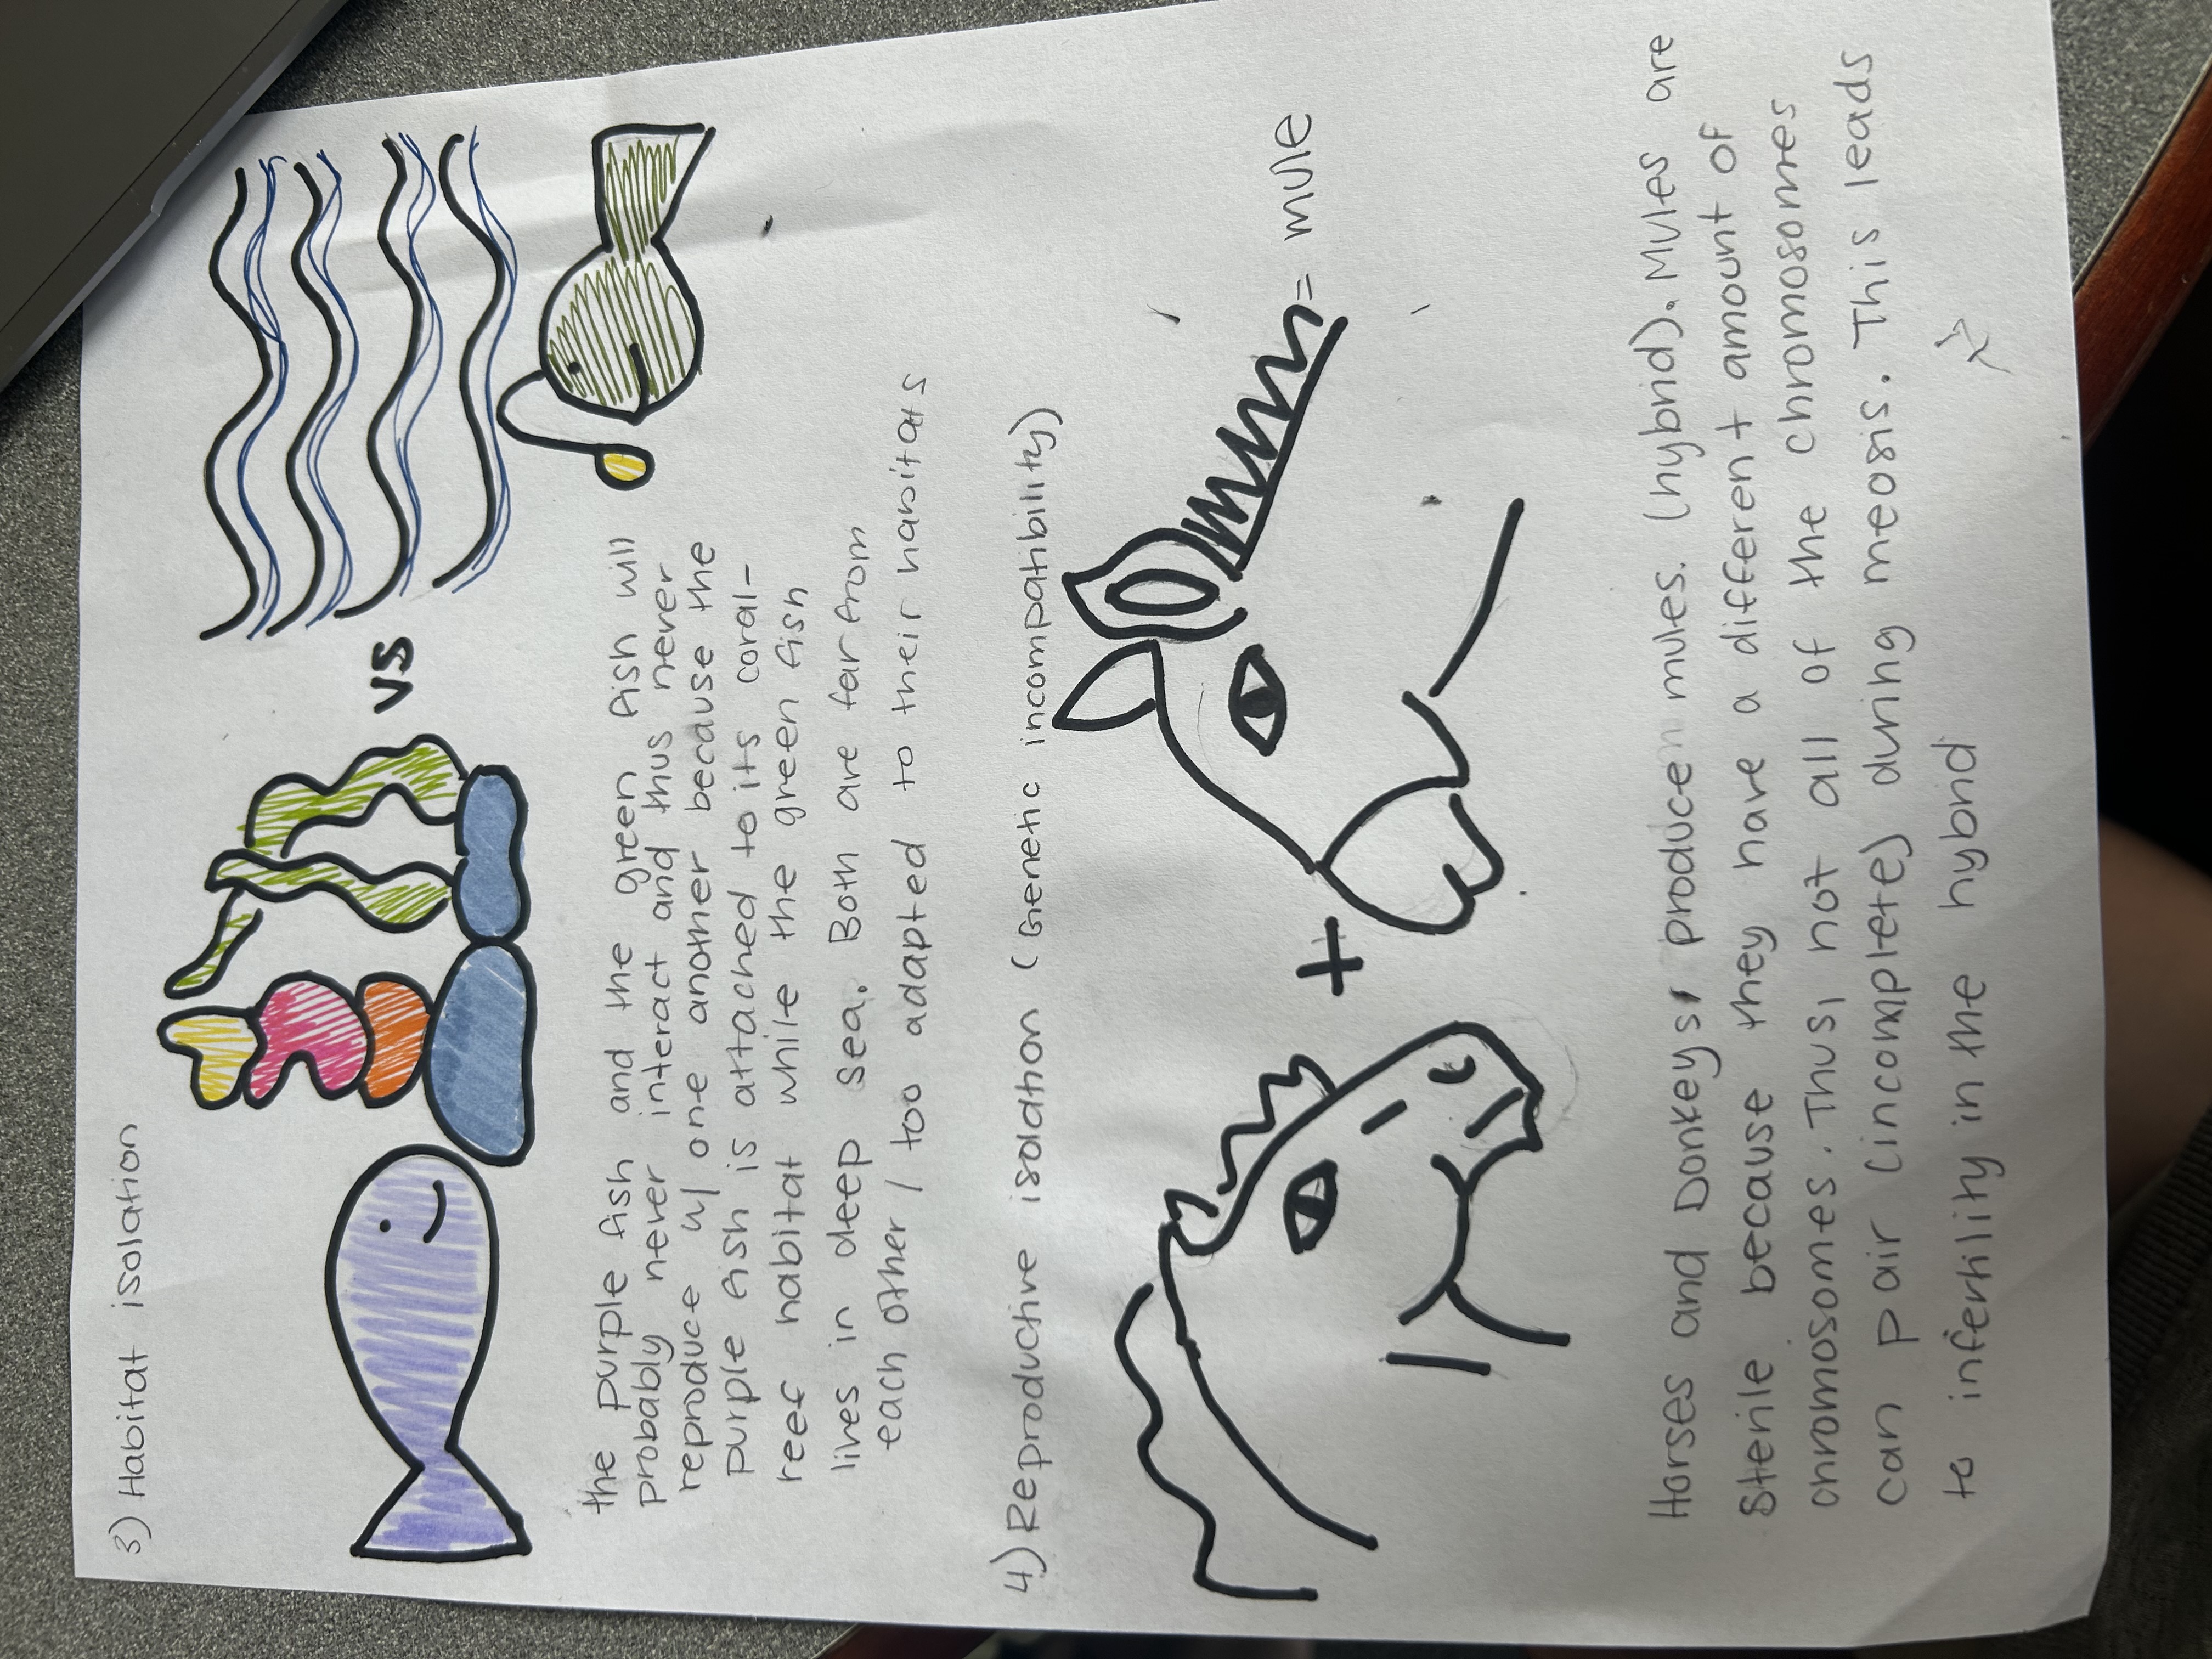 3) Habitat isolation
vs
the purple fish and the green fish will
probably never interact and thus never
reproduce w/ one another because the
purple fish is attached to its coral-
reef habitat while the green fish
lives in deep sea. Both are far from
each other / too adapted to their habitats
4) Reproductive isolation (Genetic incompatibility)
+
= mule
Horses and Donkeys, produce mules. (hybrid). Mules are
sterile because they have a different amount of
chromosomes. Thus, not all of the chromosomes
can pair (incomplete) during meosis. This leads
to infertility in the hybrid